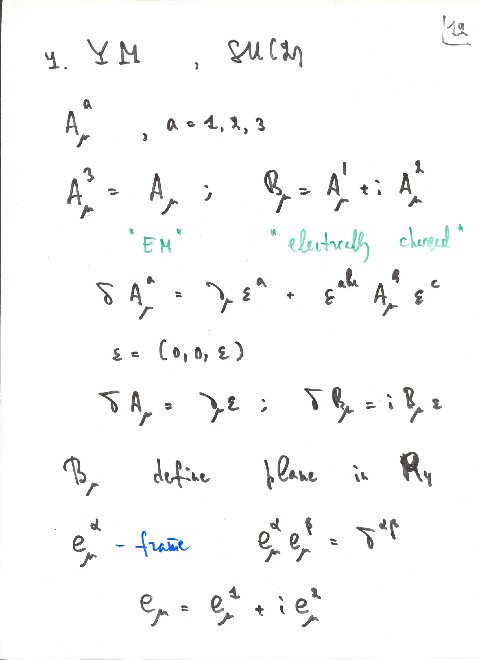 12
4. YM , SU(2)
A_μ^a , a = 1, 2, 3
A_μ^3 = A_μ ; B_μ = A_μ^1 + i A_μ^2
"EM" "electrically charged"
δ A_μ^a = ∂_μ ε^a + ε^{abc} A_μ^b ε^c
ε = (0, 0, ε)
δ A_μ = ∂_μ ε ; δ B_μ = i B_μ ε
B_μ define plane in R_4
e_μ^α - frame e_μ^α e_μ^β = δ^{αβ}
e_μ = e_μ^1 + i e_μ^2